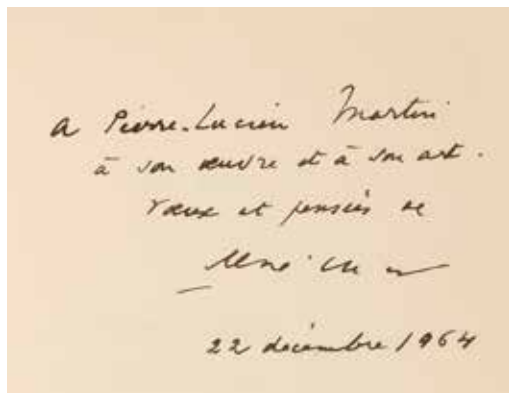 A Pierre-Lucien Martin
à son œuvre et à son art.
Vœux et pensées de
22 décembre 1964